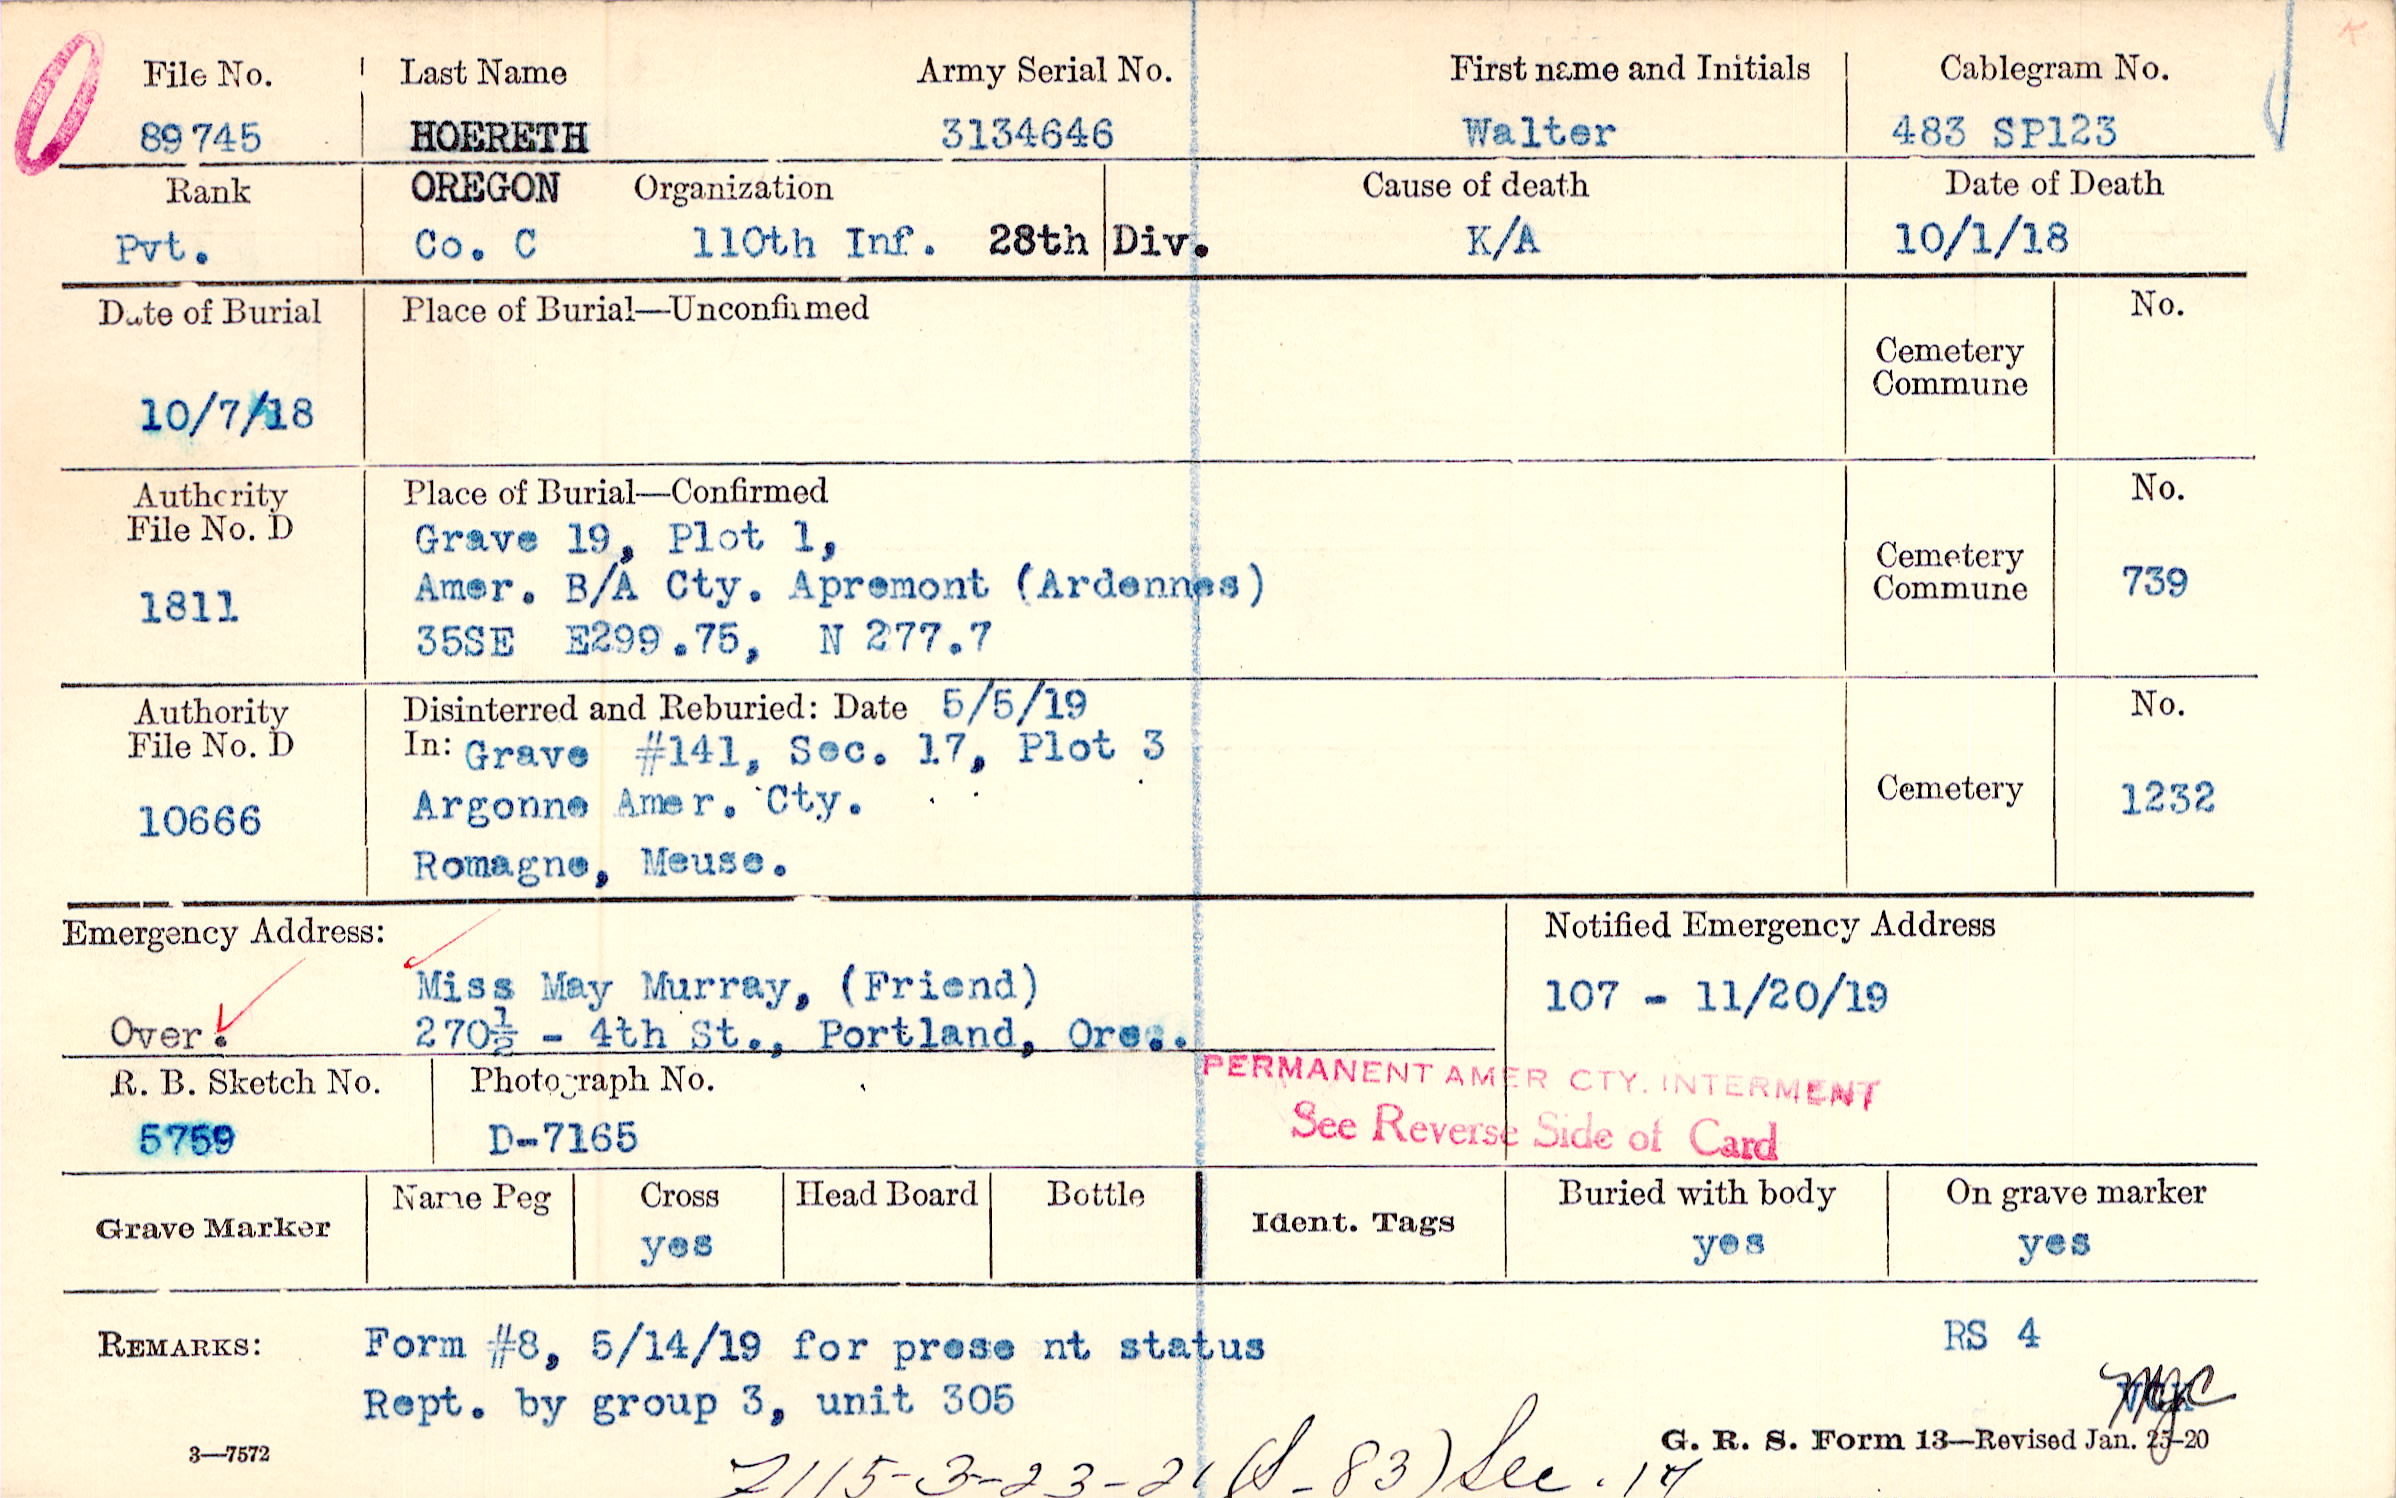 File No. Last Name Army Serial No. First name and Initials Cablegram No.
89745 HOERETH 3134646 Walter 483 SP123
Rank OREGON Organization Cause of death Date of Death
Pvt. Co. C 110th Inf. 28th Div. K/A 10/1/18
Date of Burial Place of Burial—Unconfirmed No.
Cemetery
Commune
10/7/18
Authority Place of Burial—Confirmed No.
File No. D Grave 19, Plot 1,
Cemetery
1811 Amer. B/A Cty. Apremont (Ardennes) Commune 739
35SE E299.75, N 277.7
Authority Disinterred and Reburied: Date 5/5/19 No.
File No. D In: Grave #141, Sec. 17, Plot 3
10666 Argonne Amer. Cty. Cemetery 1232
Romagne, Meuse.
Emergency Address: Notified Emergency Address
Miss May Murray, (Friend) 107 - 11/20/19
Over. 270½ - 4th St., Portland, Ore.
PERMANENT AMER CTY. INTERMENT
R. B. Sketch No. Photograph No.
See Reverse Side of Card
5759 D-7165
Grave Marker Name Peg Cross Head Board Bottle Ident. Tags Buried with body On grave marker
yes yes yes
REMARKS: Form #8, 5/14/19 for prese nt status RS 4
Rept. by group 3, unit 305
3—7572 G. R. S. Form 13—Revised Jan. 25-20
(S-83) Sec. 17